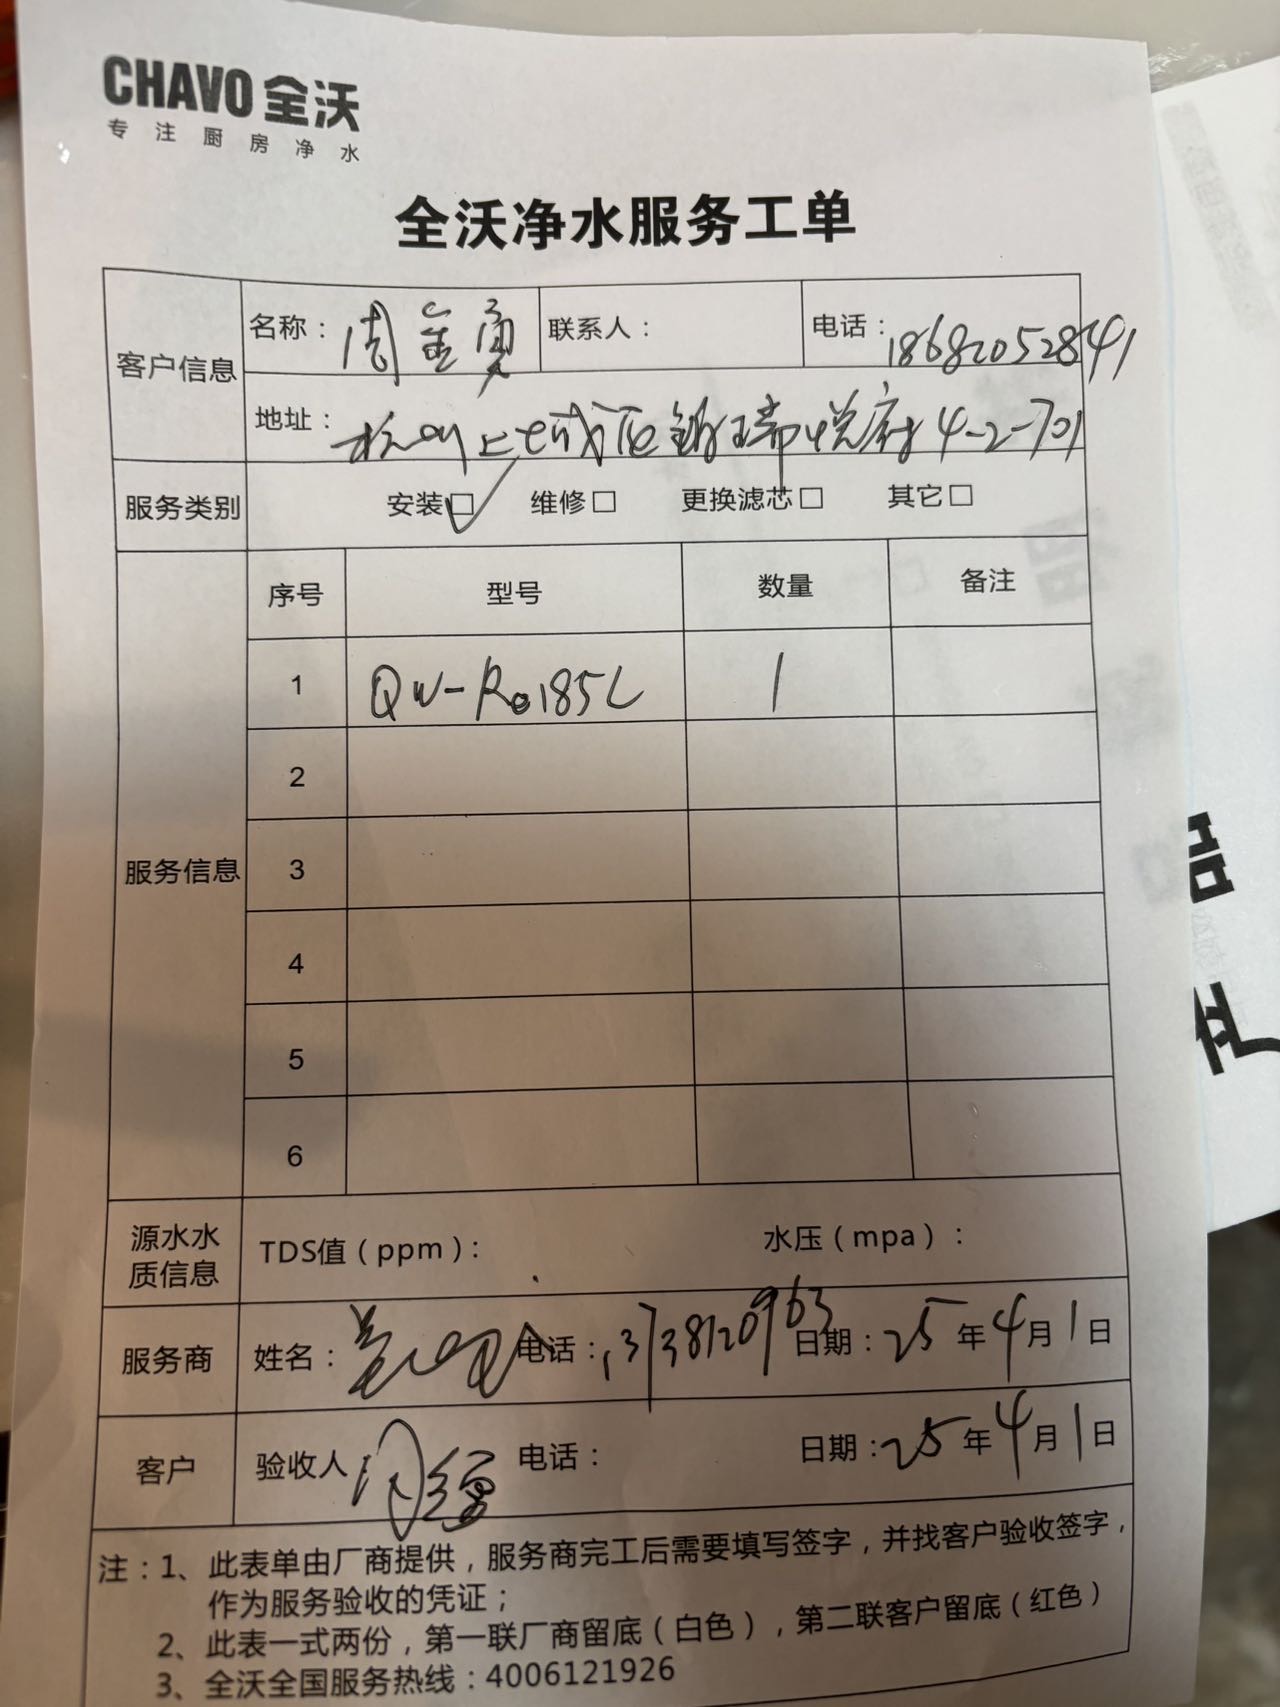 CHAVO 全沃
专注厨房净水
全沃净水服务工单
客户信息
名称：周金勇 联系人： 电话：18682052841
地址：杭州上城区 瑞悦府 4-2-701
服务类别 安装☑ 维修□ 更换滤芯□ 其它□
服务信息
序号 型号 数量 备注
1 QW-Ro185L 1
2
3
4
5
6
源水水质信息 TDS值（ppm）： 水压（mpa）：
服务商 姓名： 电话：13738120963 日期：25年4月1日
客户 验收人 电话： 日期：25年4月1日
注：1、此表单由厂商提供，服务商完工后需要填写签字，并找客户验收签字，
作为服务验收的凭证；
2、此表一式两份，第一联厂商留底（白色），第二联客户留底（红色）
3、全沃全国服务热线：4006121926